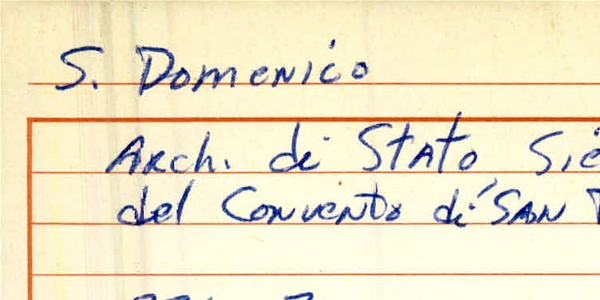 S. Domenico
Arch. di Stato, Sie
del Convento di SAN